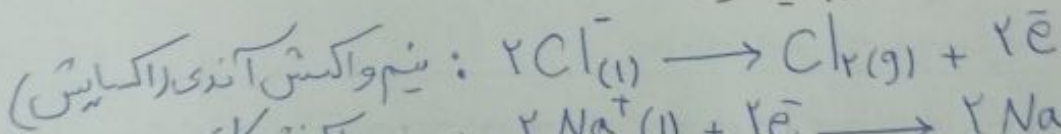 نیم‌واکنش آندی (اکسایش) : ۲Cl⁻(l) → Cl₂(g) + ۲e⁻
۲Na⁺(l) + ۲e⁻ → ۲Na